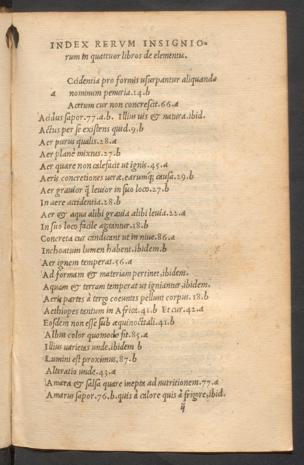 INDEX RERVM INSIGNIO-
rum in quattuor libros de elementis.
Ccidentia pro formis usurpantur aliquando
a nominum penuria.14.b
Acetum cur non concrescit.66.a
Acidus sapor.77.a.b. Illius uis & natura.ibid.
Actus per se existens quid.9.b
Aer purus qualis.28.a
Aer planè mixtus.27.b
Aer quare non calefacit ut ignis.45.a
Aeris concretiones ueræ, earumq; causa.29.b
Aer grauior q̃ leuior in suo loco.27.b
In aere accidentia.28.b
Aer & aqua alibi grauia alibi leuia.22.a
In suo loco facile agitantur.18.b
Concreta cur candicant ut in niue.86.a
Inchoatum lumen habent.ibidem.b
Aer ignem temperat.56.a
Ad formam & materiam pertinet.ibidem.
Aquam & terram temperat ut igniantur.ibidem.
Aeris partes à tergo coeuntes pellunt corpus.18.b
Aethiopes tantum in Africa.41.b Et cur.42.a
Eosdem non esse sub æquinoctiali.41.b
Albus color quomodo fit.85.a
Illius uarietas unde.ibidem b
Lumini est proximus.87.b
Alteratio unde.43.a
Amara & salsa quare inepta ad nutritionem.77.a
Amarus sapor.76.b.quis à calore quis à frigore.ibid.
ij